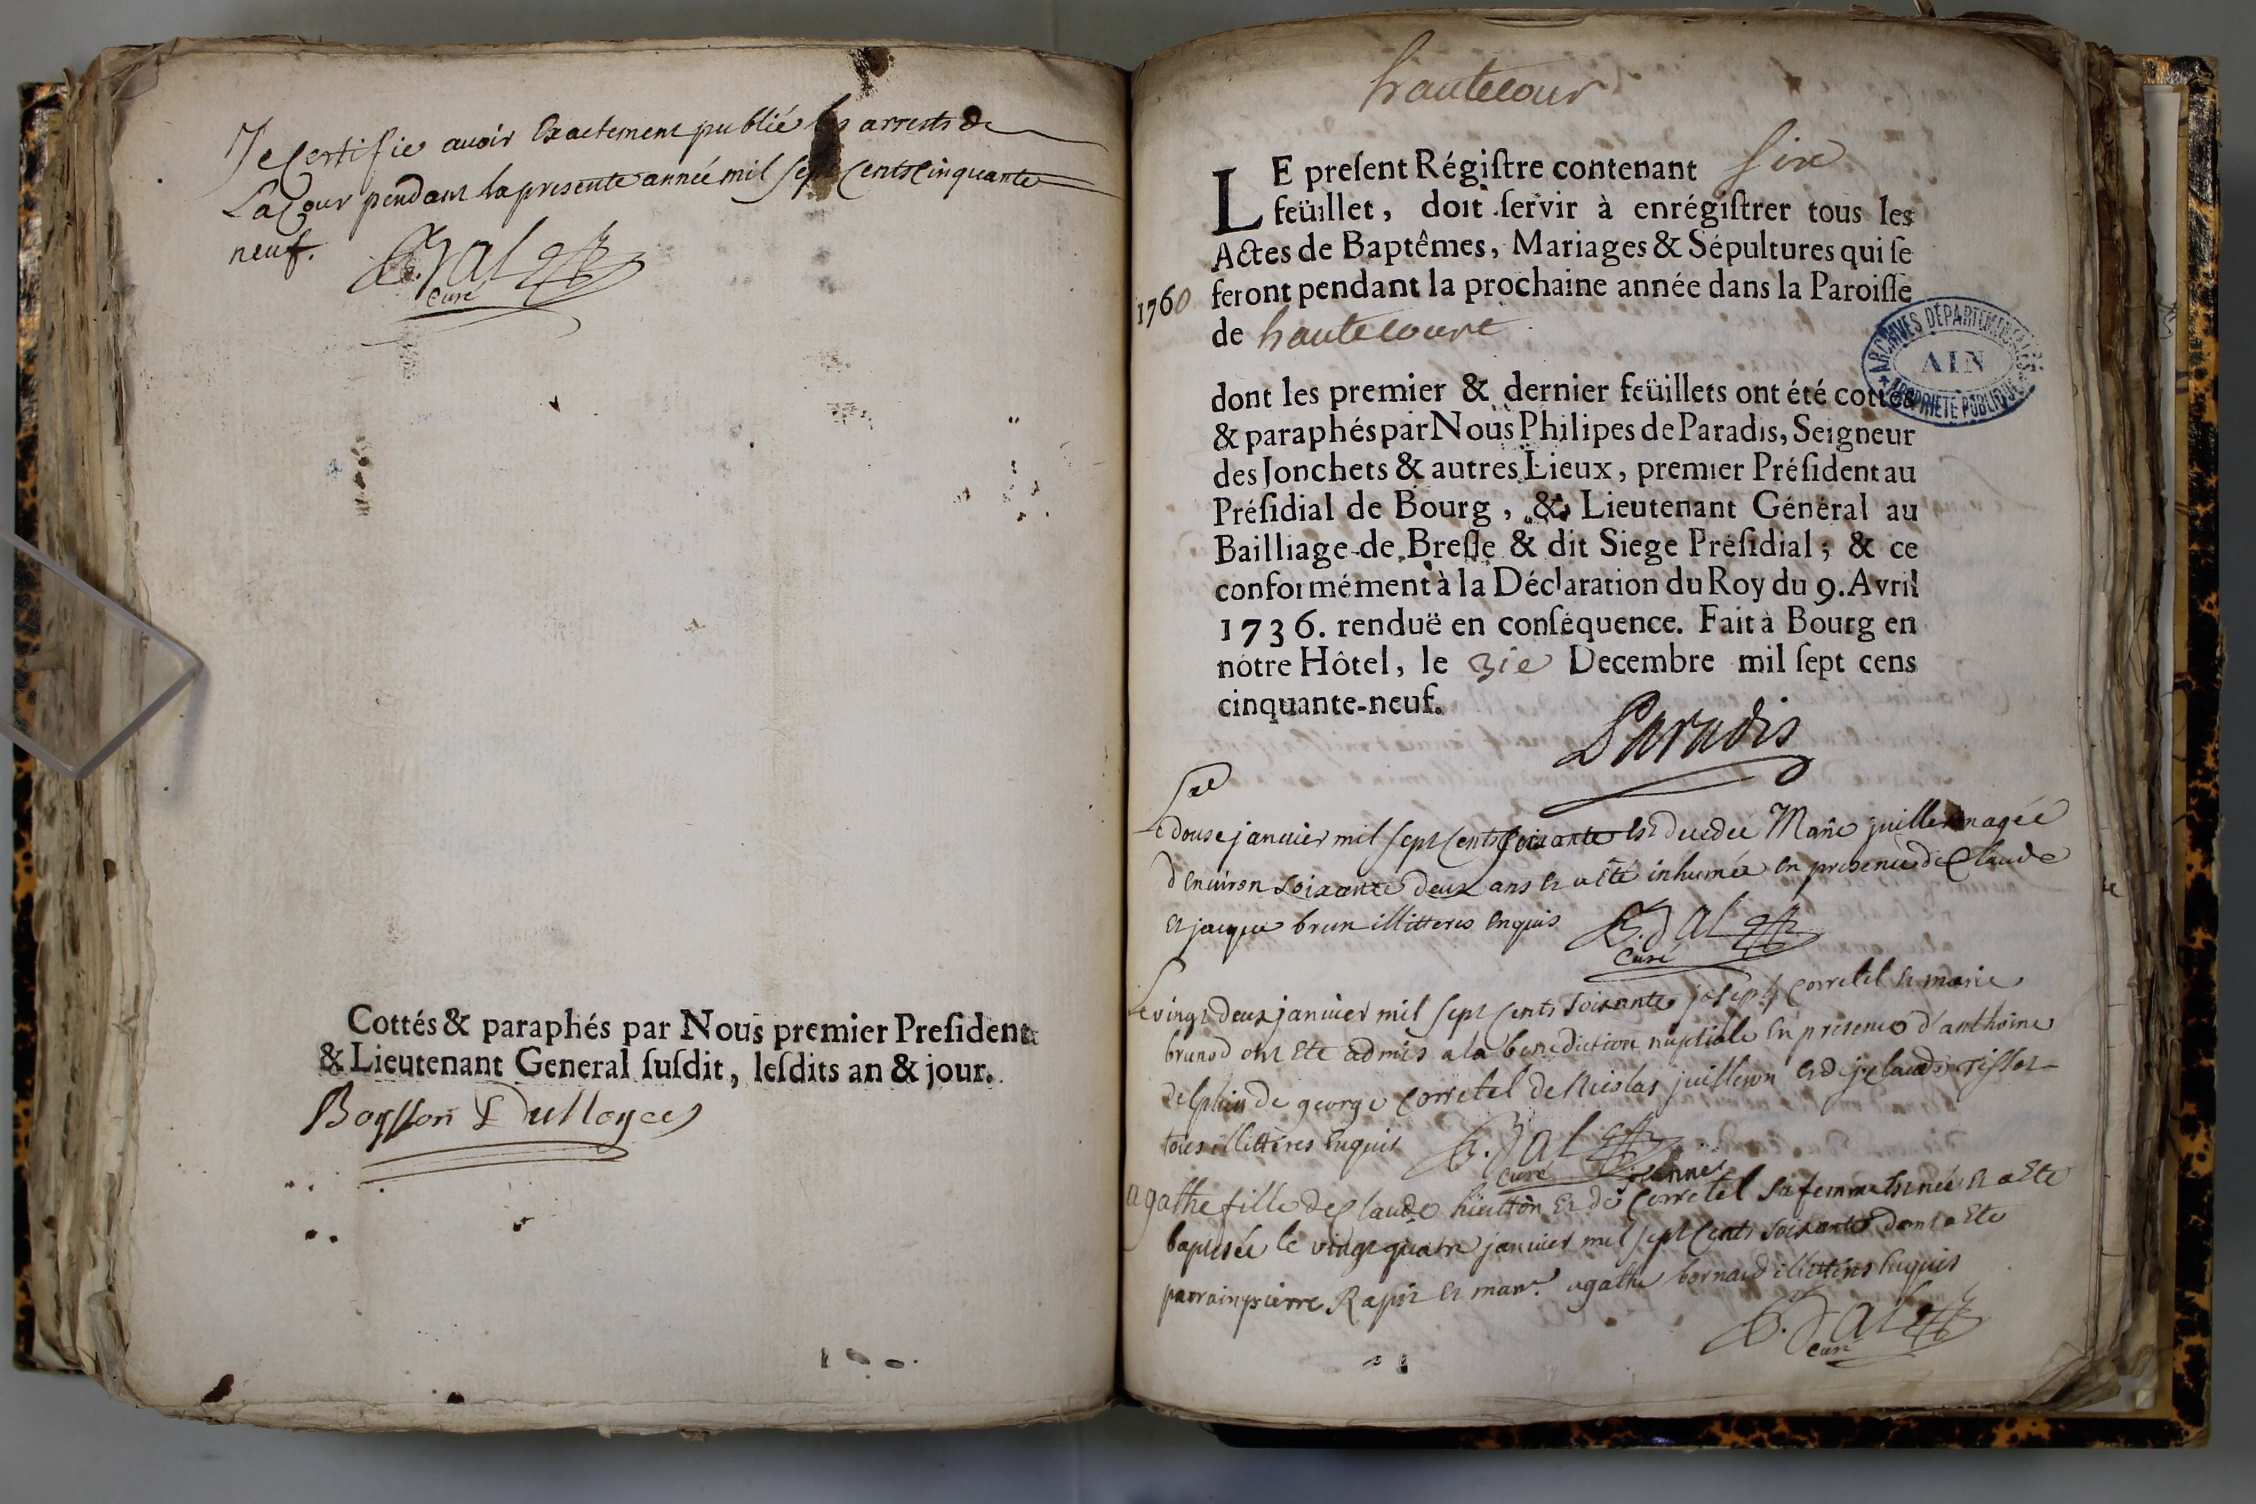 Je Certifie avoir Exactement publié les arrests de
La Cour pendant la presente année mil sept Cents Cinquante
neuf.
Curé
Cottés & paraphés par Nous premier Preſident
& Lieutenant General ſuſdit, leſdits an & jour.
hautecour
LE preſent Régiſtre contenant six
feüillet, doit ſervir à enrégiſtrer tous les
Actes de Baptêmes, Mariages & Sépultures qui ſe
1760 feront pendant la prochaine année dans la Paroiſſe
de hautecourt
ARCHIVES DÉPARTEMENTALES
AIN
PROPRIÉTÉ PUBLIQUE
dont les premier & dernier feüillets ont été cottés
& paraphés par Nous Philipes de Paradis, Seigneur
des Jonchets & autres Lieux, premier Préſident au
Préſidial de Bourg, & Lieutenant Général au
Bailliage de Breſſe & dit Siege Préſidial; & ce
conformément à la Déclaration du Roy du 9. Avril
1736. renduë en conſéquence. Fait à Bourg en
nôtre Hôtel, le 31e Decembre mil ſept cens
cinquante-neuf.
Paradis
Le douse janvier mil sept Cents soixante Est decedée Marie juilleron agée
d'Environ soixante deux ans Et a Eté inhumée En presence de Claude
Et jacque brun illitteres Enquis
Curé
Le vingt deux janvier mil sept Cents soixante joseph Corretel Et marie
brunod ont Eté admis a la benediction nuptiale En presence d'anthoine
delphin de george Corretel de Nicolas juilleron Et de Claude Tissot
tous illitteres Enquis
Curé
jeanne
agathe fille de Claude hieitton Et de Corretel sa femme Est née Et a Eté
baptisée le vingt quatre janvier mil sept Cents soixante dont a Eté
parrain pierre Rapit Et mar.e agathe bornard illitteres Enquis
Curé